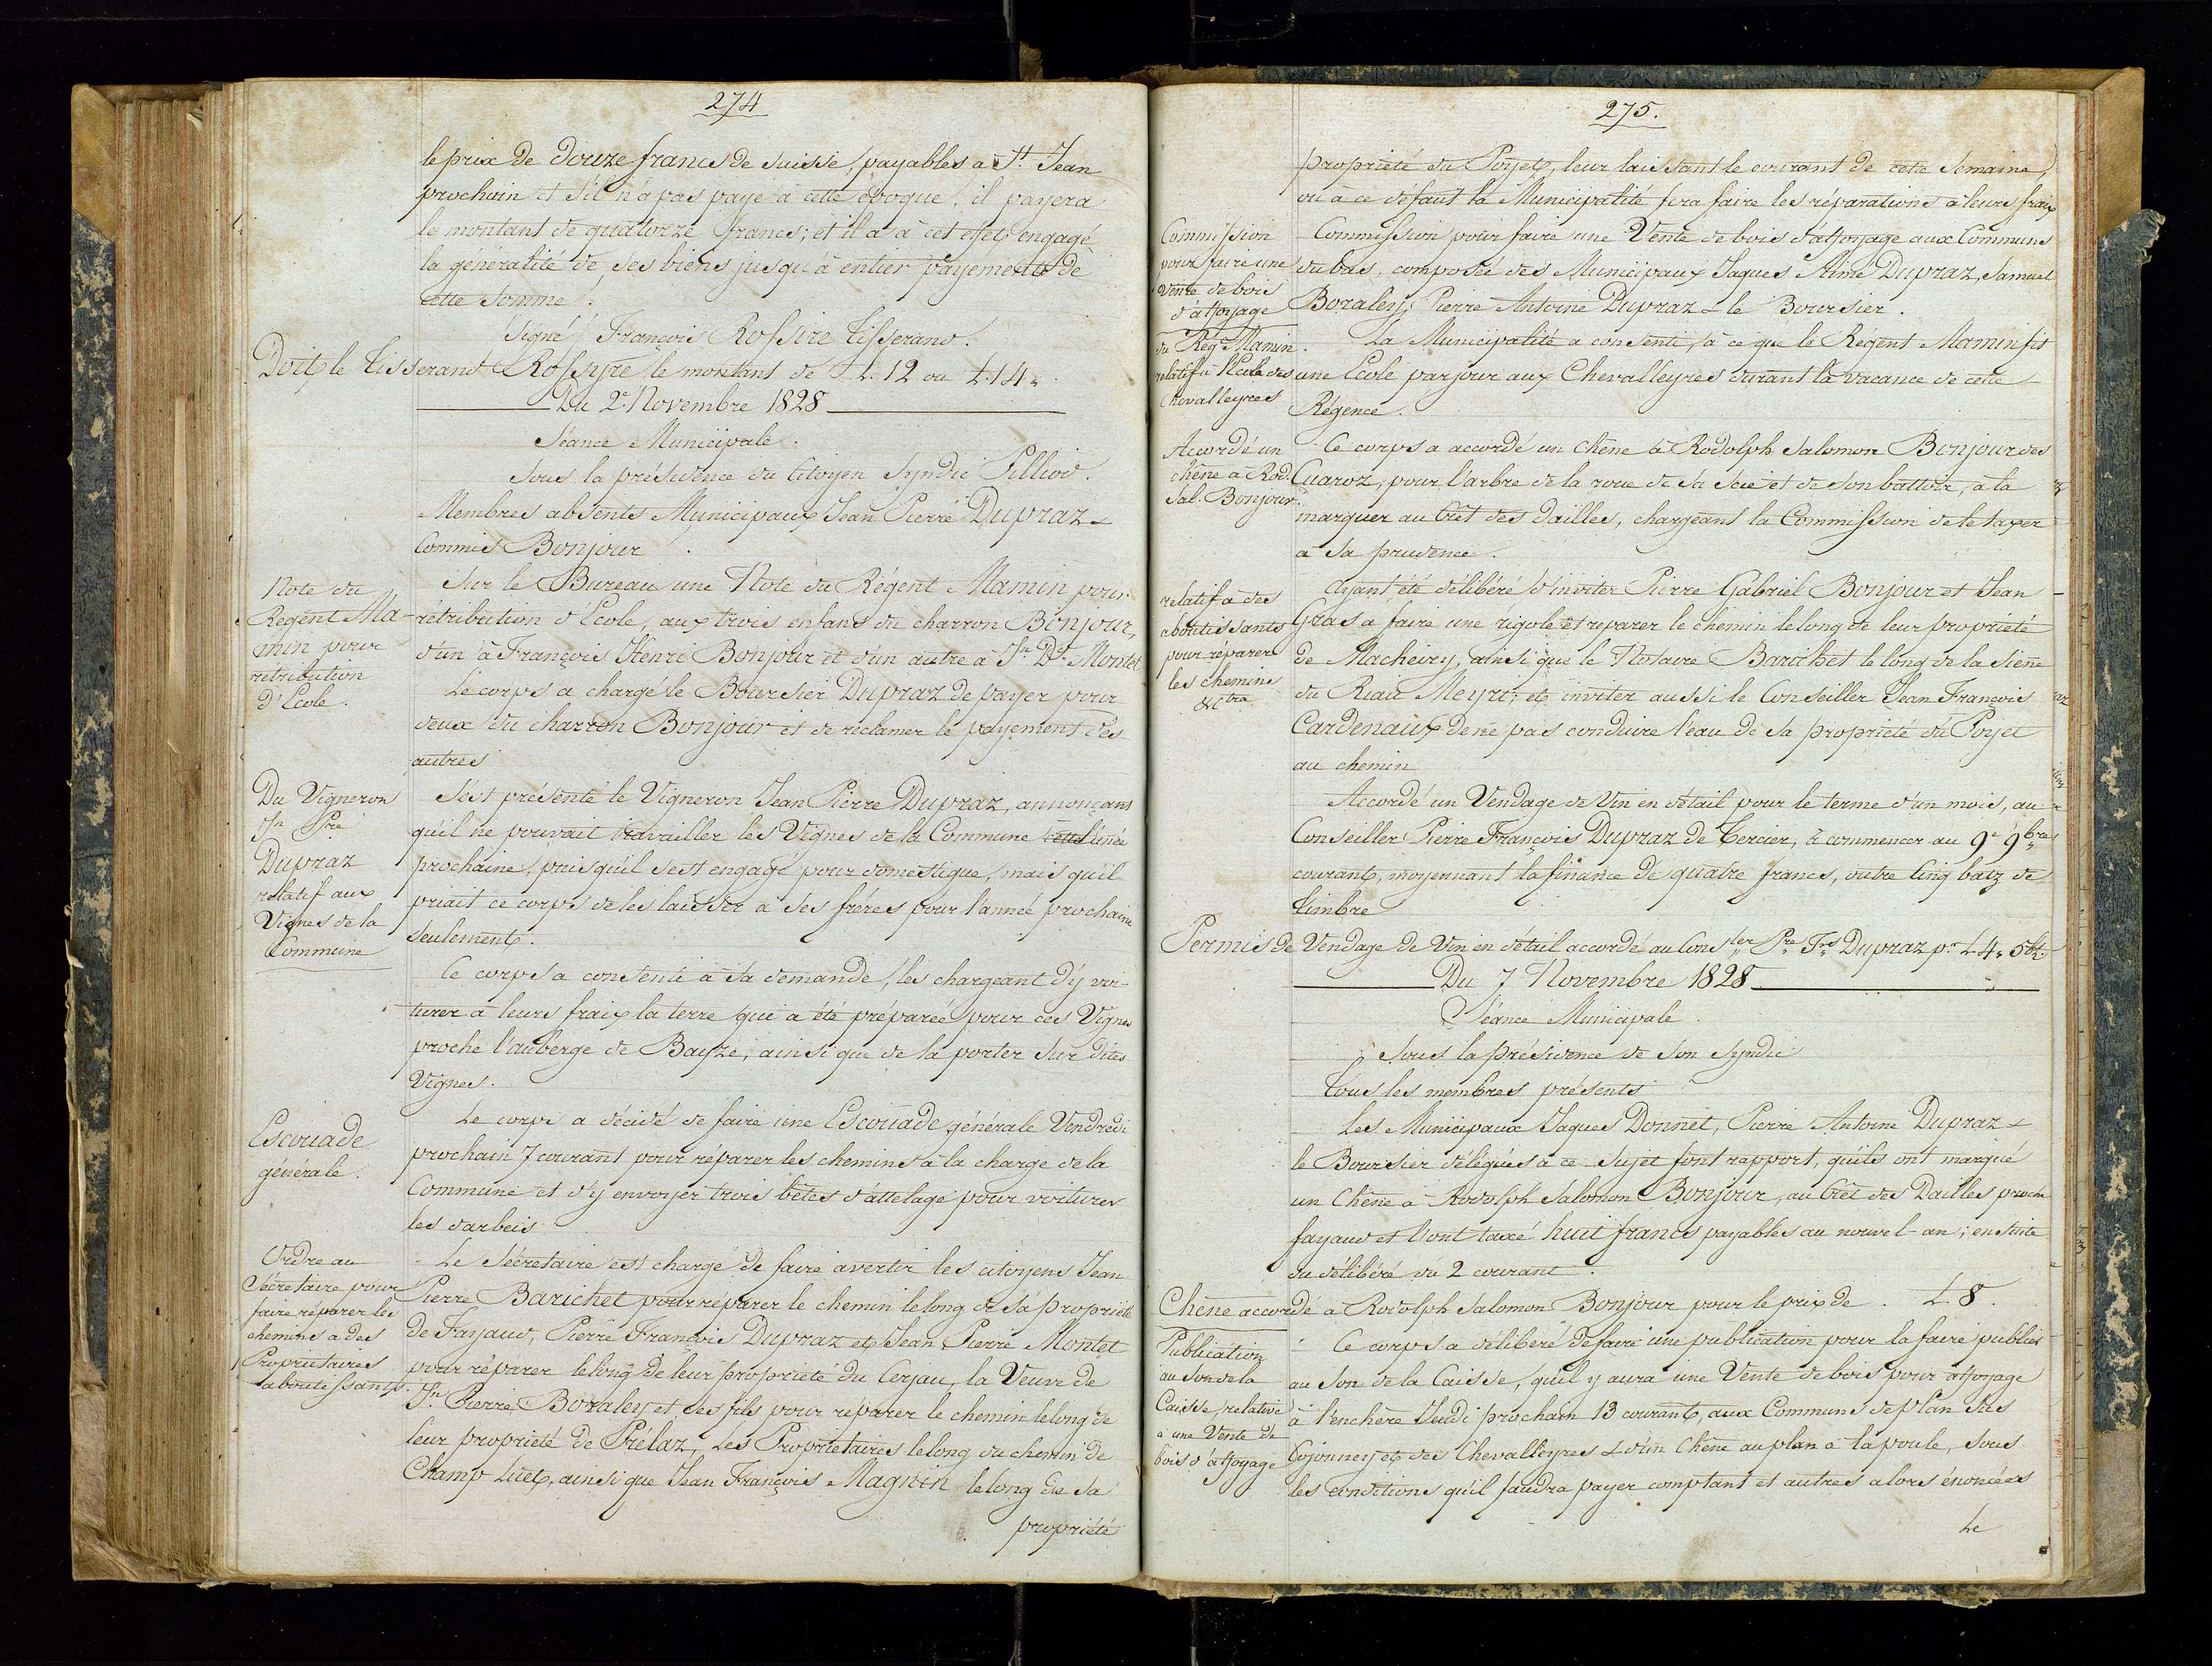 274
le prix de douze francs de suisse, payables à St. Jean
prochain et s'il n'a pas payé à cette époque, il payera
le montant de quatorze francs; et il a à cet effet engagé
la généralité de ses biens jusqu'à entier payement de
cette somme.
signé / François Rossire tisserand.
Doit le tisserand Rossyre le montant de L. 12 ou L. 14 "
Du 2e Novembre 1828
Séance Municipale.
Sous la présidence du Citoyen Syndic Pilliod.
Membres absents Municipaux Jean Pierre Dupraz &
Commis Bonjour.
Note du
Régent Ma-
min pour
rétribution
d'Ecole.
Sur le Bureau une Note du Régent Mamin pour
rétribution d'Ecole, aux trois enfans du charron Bonjour,
d'un à François Henri Bonjour et d'un autre à Jn. Dd. Montet
Le corps a chargé le Boursier Dupraz de payer pour
deux du charron Bonjour et de réclamer le payement des
autres
Du Vigneron
Jn Pre
Dupraz
relatif aux
Vignes de la
Commune
S'est présenté le Vigneron Jean Pierre Dupraz, annonçant
qu'il ne pouvait travailler les Vignes de la Commune cette année
prochaine, puisqu'il s'est engagé pour domestique, mais qu'il
priait ce corps de les laisser à ses frères pour l'année prochaine
seulement.
Ce corps a consenti à sa demande, les chargeant d'y voi-
turer à leurs fraix la terre qui a été préparée pour ces Vignes
proche l'auberge de Bauze, ainsi que de la porter sur dites
Vignes.
Escouade
générale.
Le corps a décidé de faire une Escouade générale Vendredi
prochain 7 courant pour réparer les chemins à la charge de la
Commune et d'y envoyer trois bêtes d'attelage pour voiturer
les darbeis
Ordre au
Sécretaire pour
faire réparer les
chemins a des
Propriétaires
aboutissants.
Le Sécretaire est chargé de faire avertir les citoyens Jean
Pierre Barichet pour réparer le chemin le long de sa propriété
de Fayaud, Pierre François Dupraz et Jean Pierre Montet
pour réparer le long de leur propriété du Cerjau, la Veuve de
Jn. Pierre Boraley et ses fils pour réparer le chemin le long de
leur propriété de Prélaz, Les Propriétaires le long du chemin de
Champ Luet, ainsi que Jean François Magnin le long de sa
propriété
275.
propriété du Poyet, leur laissant le courant de cette semaine,
ou à ce défaut la Municipalité fera faire les réparations à leurs fraix
Commission
pour faire une
Vente de bois
d'affoyage
Commission pour faire une Vente de bois d'affoyage aux Communs
du bas, composée des Municipaux Jaques Aimé Dupraz, Samuel
Boraley, Pierre Antoine Dupraz & le Boursier.
du Rég. Mamin
relatif à l'Ecole des
Chevalleyres
La Municipalité a consenti, à ce que le Régent Mamin fit
une Ecole par jour aux Chevalleyres durant la vacance de cette
Régence.
Accordé un
chêne à Rod.
Sal. Bonjour.
Ce corps a accordé un chêne à Rodolph Salomon Bonjour des
Cuaroz, pour l'arbre de la roue de sa scie et de son battoir, à la
marquer au Crêt des Dailles, chargeant la Commission de le taxer
à sa prudence.
relatif à des
aboutissants
pour réparer
les chemins
&ctra
Ayant été délibéré d'inviter Pierre Gabriel Bonjour et Jean
Gras a faire une rigole et reparer le chemin le long de leur propriété
de Macheiry, ainsi que le Notaire Barichet le long de la sienne
du Riau Meyre; et inviter aussi le Conseiller Jean François
Cardenaux de ne pas conduire l'eau de sa propriété du Poyet
au chemin
Accordé un Vendage de Vin en détail pour le terme d'un mois, au
Conseiller Pierre François Dupraz de Tercier, à commencer au 9e 9bre
courant, moyennant la finance de quatre francs, outre Cinq batz de
timbre
Permis de Vendage de Vin en détail accordé au Conster Pre Frs Dupraz pr. L 4 " 5 btz.
Du 7 Novembre 1828
Séance Municipale.
Sous la présidence de son Syndic
tous les membres présents
Les Municipaux Jaques Donnet, Pierre Antoine Dupraz &
le Boursier délégués à ce sujet font rapport, qu'ils ont marqué
un Chêne à Rodolph Salomon Bonjour, au Crêt des Dailles proche
fayaud et l'ont taxé huit francs payables au nouvel-an; ensuite
du délibéré du 2 courant.
Chêne accordé à Rodolph Salomon Bonjour pour le prix de . L 8.
Publication
au Son de la
Caisse, relative
à une Vente de
bois d'affoyage
Ce corps a délibéré de faire une publication pour la faire publier
au Son de la Caisse, qu'il y aura une Vente de bois pour affoyage
à l'enchère Jeudi prochain 13 courant, aux Communs de plan sus
Cojonney et des Chevalleyres & d'un Chêne au plan à la poule, sous
les conditions qu'il faudra payer comptant et autres alors énoncées
Le